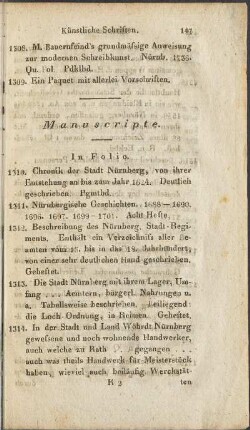 Künstliche Schriften. 147
1308. M. Baurenfeind's grundmäßige Anweisung
zur modernen Schreibkunst. Nürnb. 1736.
Qu. Fol. Ppdklbd.
1309. Ein Paquet mit allerlei Vorschriften.
Manuscripte.
In Folio.
1310. Chronik der Stadt Nürnberg, von ihrer
Entstehung an bis zum Jahr 1624. Deutlich
geschrieben. Pgmtbd.
1311. Nürnbergische Geschichten. 1688—1690.
1696. 1697. 1699—1701. Acht Hefte.
1312. Beschreibung des Nürnberg. Stadt-Regi-
ments. Enthält ein Verzeichniß aller Be-
amten vom 13. bis in das 18. Jahrhundert,
von einer sehr deutlichen Hand geschrieben.
Geheftet.
1313. Die Stadt Nürnberg mit ihrem Lager, Um-
fang, Aemtern, bürgerl. Nahrungen u.
Tabellsweise beschrieben, beiliegend:
die Loch Ordnung, in Reimen. Geheftet.
1314. In der Stadt und Land Wöhrdt Nürnberg
gewesene und noch wohnende Handwerker,
auch welche zu Rath gegangen
auch was theils Handwerk für Meisterstück
haben, wieviel auch beiläufig Werchstät-
K 2 ten